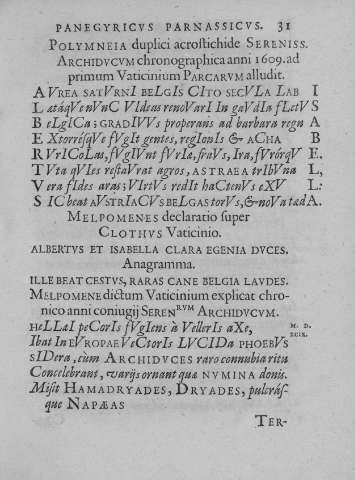 PANEGYRICVS PARNASSICVS. 31
POLYMNEIA duplici acrostichide SERENISS.
ARCHIDVCVM chronographica anni 1609. ad
primum Vaticinium PARCARVM alludit.
AVREA satVrnI beLgIs CIto secVLa Lab I
LætáqVe nVnC VIdeas renoVarI In gaVdIa fLetV S
BeLgICa; graDIVVs properans ad barbara regn A
EXtorrésqVe fVgIt gentes, regIonIs & aCha B
RVrICoLas, fVgIVnt fVrIæ, fraVs, Ira, fVrórqV E.
TVta qVIes restaVrat agros, ASTRAEA trIbVna L,
Vera fIdes aras; VIrtVs redIt haCtenVs eXV L:
SIC beat aVstrIaCVs beLgas torVs, & noVa tæd A.
MELPOMENES declaratio super
CLOTHVS Vaticinio.
ALBERTVS ET ISABELLA CLARA EGENIA DVCES.
Anagramma.
ILLE BEAT CESTVS, RARAS CANE BELGIA LAVDES.
MELPOMENE dictum Vaticinium explicat chro-
nico anni coniugij SERENRVM ARCHIDVCVM.
HeLLæI peCorIs fVgIens in VelLerIs aXe, M. D.
Ibat In eVropæ VeCtorIs LVCIDa phoebVs XCIX.
sIDera, cùm ARCHIDVCES raro connubia ritu
Concelebrant, varijs ornant quæ NVMINA donis.
Misit HAMADRYADES, DRYADES, pulcrás-
que NAPÆAS
TER-